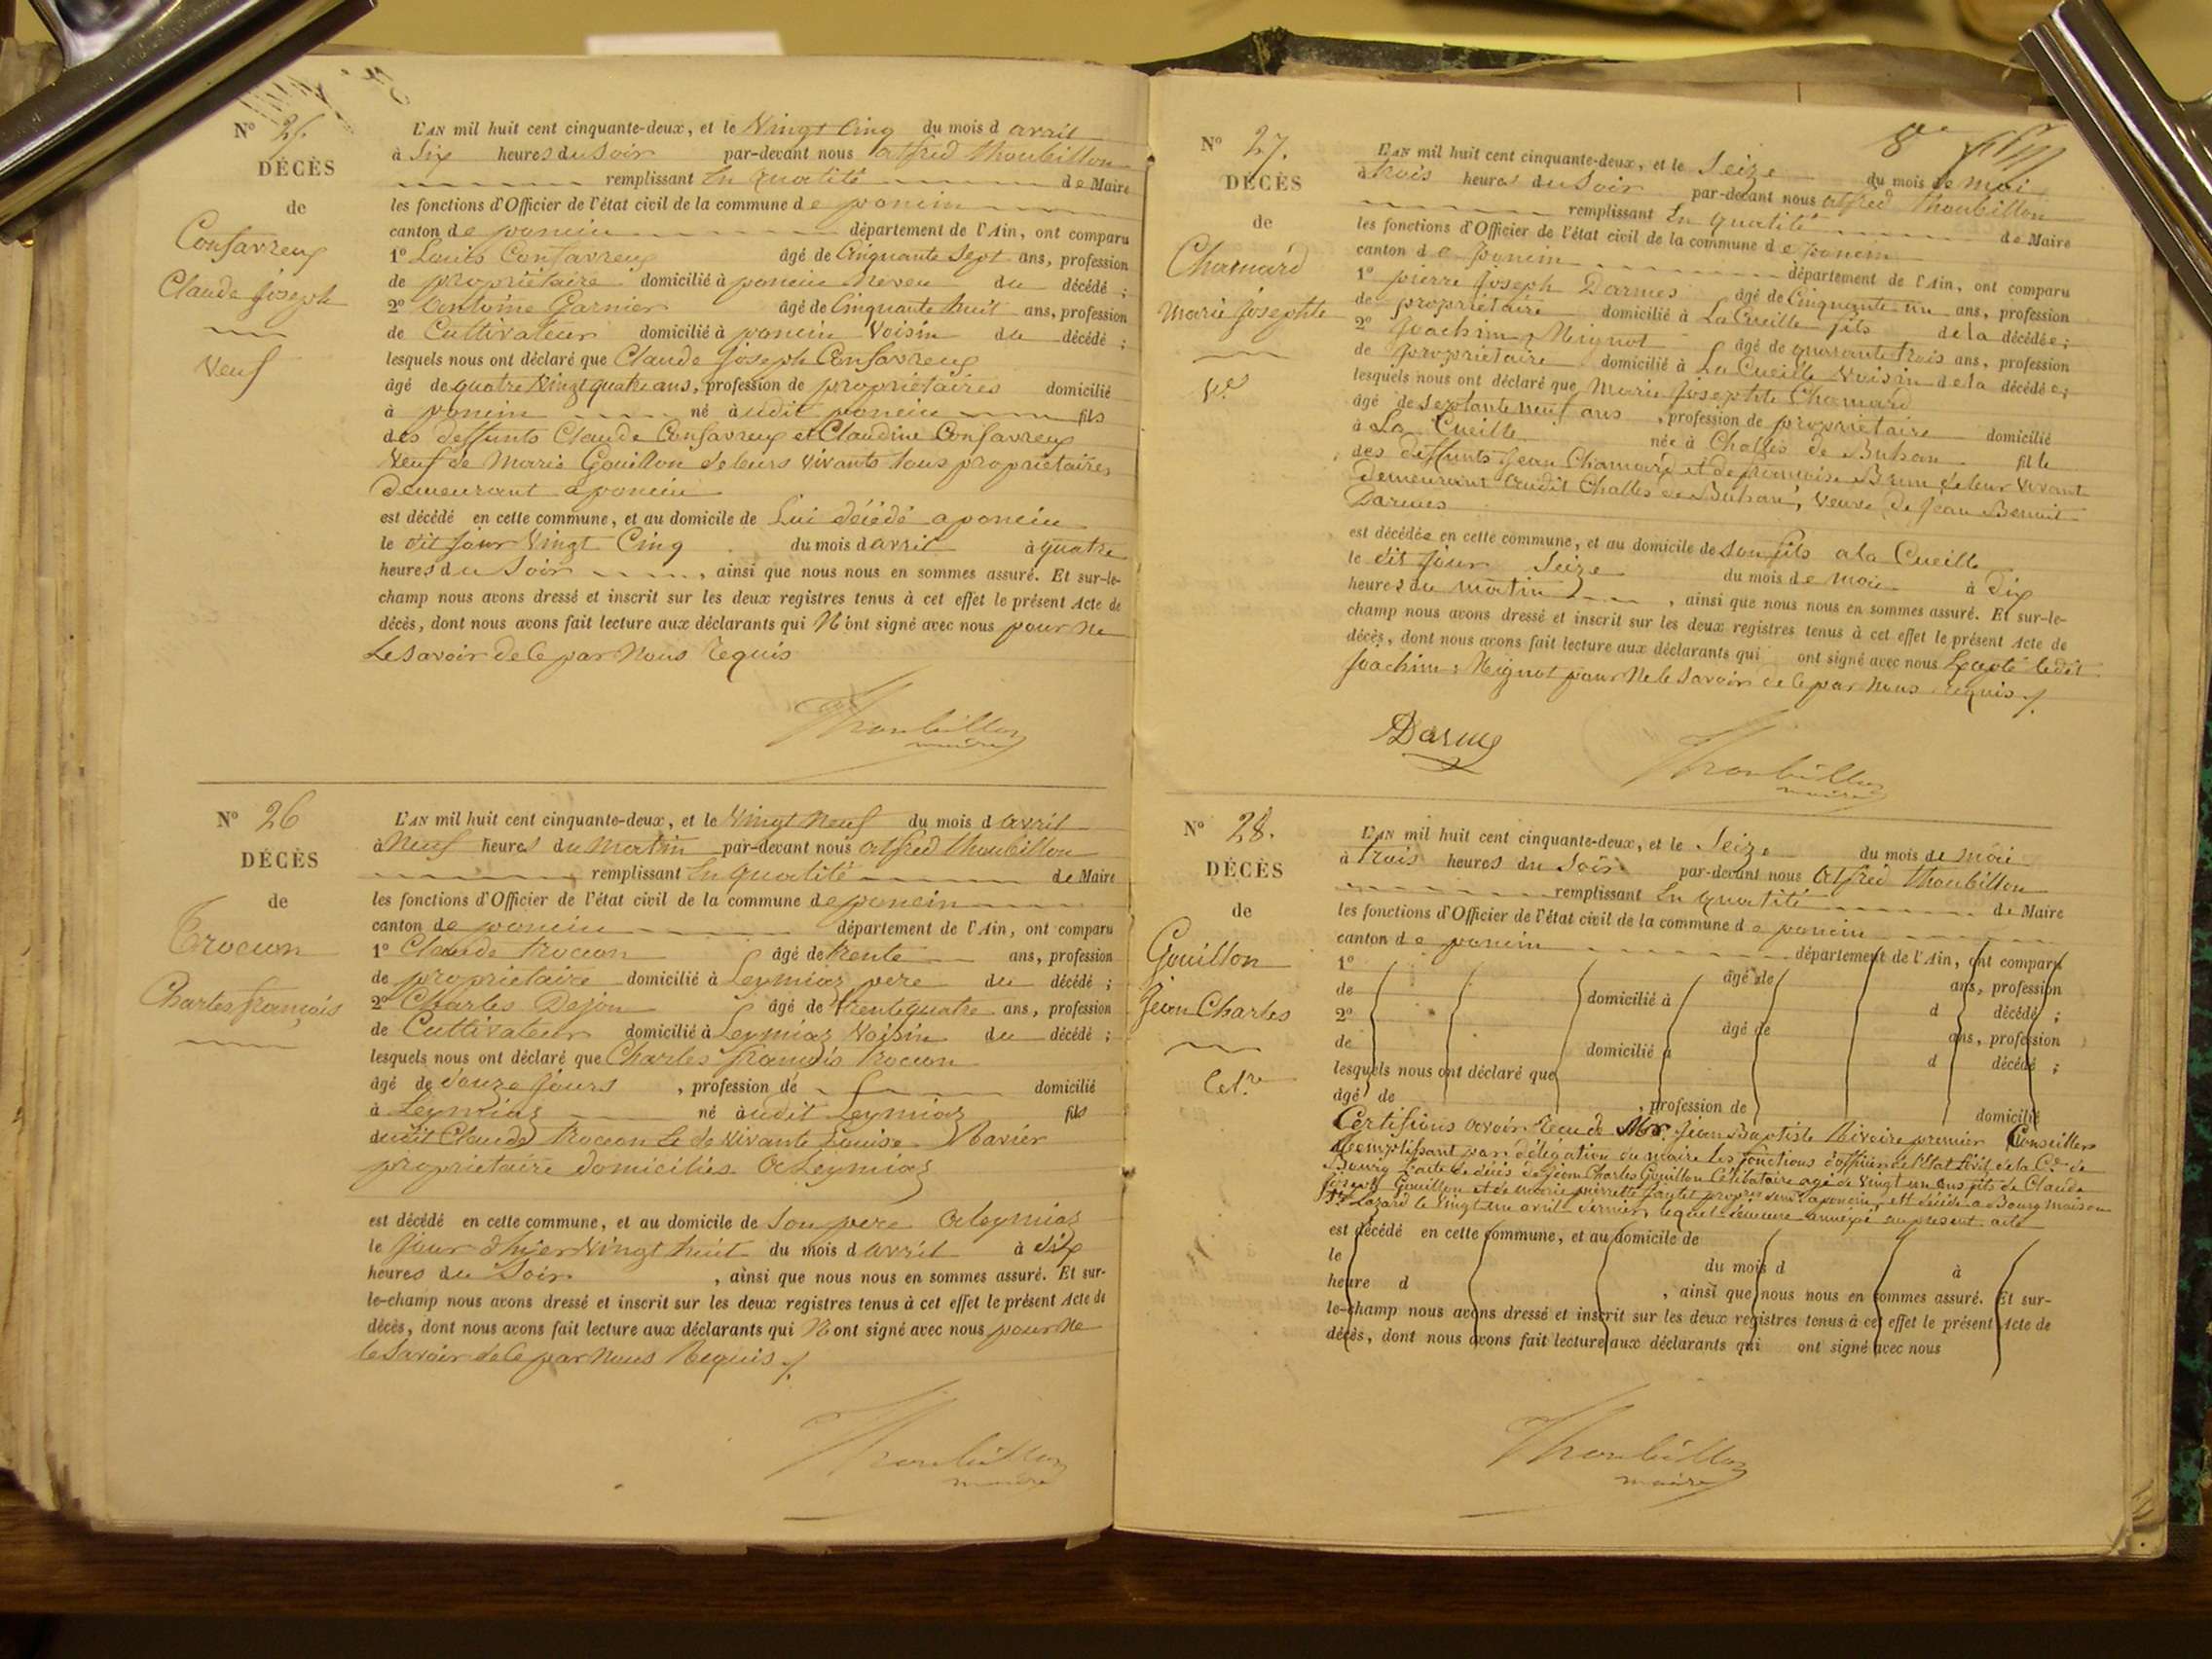 Nº 25.
DÉCÈS
de
Confavreux
Claude Joseph
Veuf
L'AN mil huit cent cinquante-deux, et le Vingt Cinq du mois d avril
à Six heures du Soir par-devant nous alfred thoubillon
remplissant En qualité de Maire
les fonctions d'Officier de l'état civil de la commune de poncin
canton de poncin département de l'Ain, ont comparu
1º Louis Confavreux âgé de Cinquante Sept ans, profession
de propriétaire domicilié à poncin Neveu du décédé ;
2º Antoine Garnier âgé de Cinquante huit ans, profession
de Cultivateur domicilié à poncin Voisin du décédé ;
lesquels nous ont déclaré que Claude Joseph Confavreux
âgé de quatre Vingt quatre ans, profession de propriétaires domicilié
à poncin né àudit poncin fils
des deffunts Claude Confavreux et Claudine Confavreux
Veuf de Marie Gouillon de leurs vivants tous propriétaires
demeurant a poncin
est décédé en cette commune, et au domicile de Lui décédé a poncin
le dit jour Vingt Cinq du mois d avril à quatre
heures du Soir , ainsi que nous nous en sommes assuré. Et sur-le-
champ nous avons dressé et inscrit sur les deux registres tenus à cet effet le présent Acte de
décès, dont nous avons fait lecture aux déclarants qui N'ont signé avec nous pour ne
Le savoir de Ce par Nous Requis
Thoubillon
maire
Nº 26
DÉCÈS
de
Trocon
Charles françois
L'AN mil huit cent cinquante-deux, et le Vingt Neuf du mois d avril
à Neuf heures du Matin par-devant nous alfred thoubillon
remplissant En qualité de Maire
les fonctions d'Officier de l'état civil de la commune de poncin
canton de poncin département de l'Ain, ont comparu
1º Claude trocon âgé de trente ans, profession
de propriétaire domicilié à Leymiaz pere du décédé ;
2º Charles Dejon âgé de trente quatre ans, profession
de Cultivateur domicilié à Leymiaz Voisin du décédé ;
lesquels nous ont déclaré que Charles françois trocon
âgé de douze jours , profession de domicilié
à Leymiaz né àudit Leymiaz fils
dudit Claude trocon et de vivante Louise Ravier
propriétaire domiciliés a Leymiaz
est décédé en cette commune, et au domicile de Son pere a leymiaz
le jour d'hier Vingt huit du mois d avril à dix
heures du Soir , ainsi que nous nous en sommes assuré. Et sur-
le-champ nous avons dressé et inscrit sur les deux registres tenus à cet effet le présent Acte de
décès, dont nous avons fait lecture aux déclarants qui N'ont signé avec nous pour ne
le Savoir de Ce par Nous Requis ./.
Thoubillon
maire
8e
Nº 27.
DÉCÈS
de
Chanard
Marie Josephte
Ve
L'AN mil huit cent cinquante-deux, et le Seize du mois de mai
à trois heures du Soir par-devant nous alfred thoubillon
remplissant En qualité de Maire
les fonctions d'Officier de l'état civil de la commune de poncin
canton de poncin département de l'Ain, ont comparu
1º pierre Joseph Darmes âgé de Cinquante un ans, profession
de propriétaire domicilié à La Cueille fils de la décédée ;
2º Joachim Mignot âgé de quarante trois ans, profession
de propriétaire domicilié à La Cueille Voisin de la décédée ;
lesquels nous ont déclaré que Marie Josephte Chanard
âgé de septante neuf ans , profession de propriétaire domicilié
à La Cueille née à Challes de Buhan fille
des deffunts Jean Chanard et de françoise Brun de leur vivant
demeurant audit Challes de Buhan, Veuve de Jean Benoit
Darmes
est décédée en cette commune, et au domicile de Son fils a la Cueille
le dit jour Seize du mois de mai à dix
heures du matin , ainsi que nous nous en sommes assuré. Et sur-le-
champ nous avons dressé et inscrit sur les deux registres tenus à cet effet le présent Acte de
décès, dont nous avons fait lecture aux déclarants qui ont signé avec nous Excepté ledit
Joachim Mignot pour Ne le Savoir de Ce par Nous requis ./.
Darme
Thoubillon
maire
Nº 28.
DÉCÈS
de
Gouillon
Jean Charles
Celre
L'AN mil huit cent cinquante-deux, et le Seize du mois de mai
à trois heures du Soir par-devant nous Alfred thoubillon
remplissant En qualité de Maire
les fonctions d'Officier de l'état civil de la commune de poncin
canton de poncin département de l'Ain, ont comparu
1º âgé de ans, profession
de domicilié à d décédé ;
2º âgé de ans, profession
de domicilié à d décédé ;
lesquels nous ont déclaré que
âgé de , profession de domicilié
Certifions avoir Recu de Mr. Jean Baptiste Rivoire premier Conseiller
Remplissant par délégation du maire les fonctions d'officier de l'état Civil de la Ce de
Bourg L'acte de décès de Jean Charles Gouillon Célibataire agé de Vingt un ans fils de Claude
Joseph Gouillon et de Marie pierrette fautet propres demt a poncin, est décédé a Bourg maison
St Lazard le Vingt un avril dernier, lequel demeure annéxé au present acte
est décédé en cette commune, et au domicile de
le du mois d à
heure d , ainsi que nous nous en sommes assuré. Et sur-
le-champ nous avons dressé et inscrit sur les deux registres tenus à cet effet le présent Acte de
décès, dont nous avons fait lecture aux déclarants qui ont signé avec nous
Thoubillon
maire